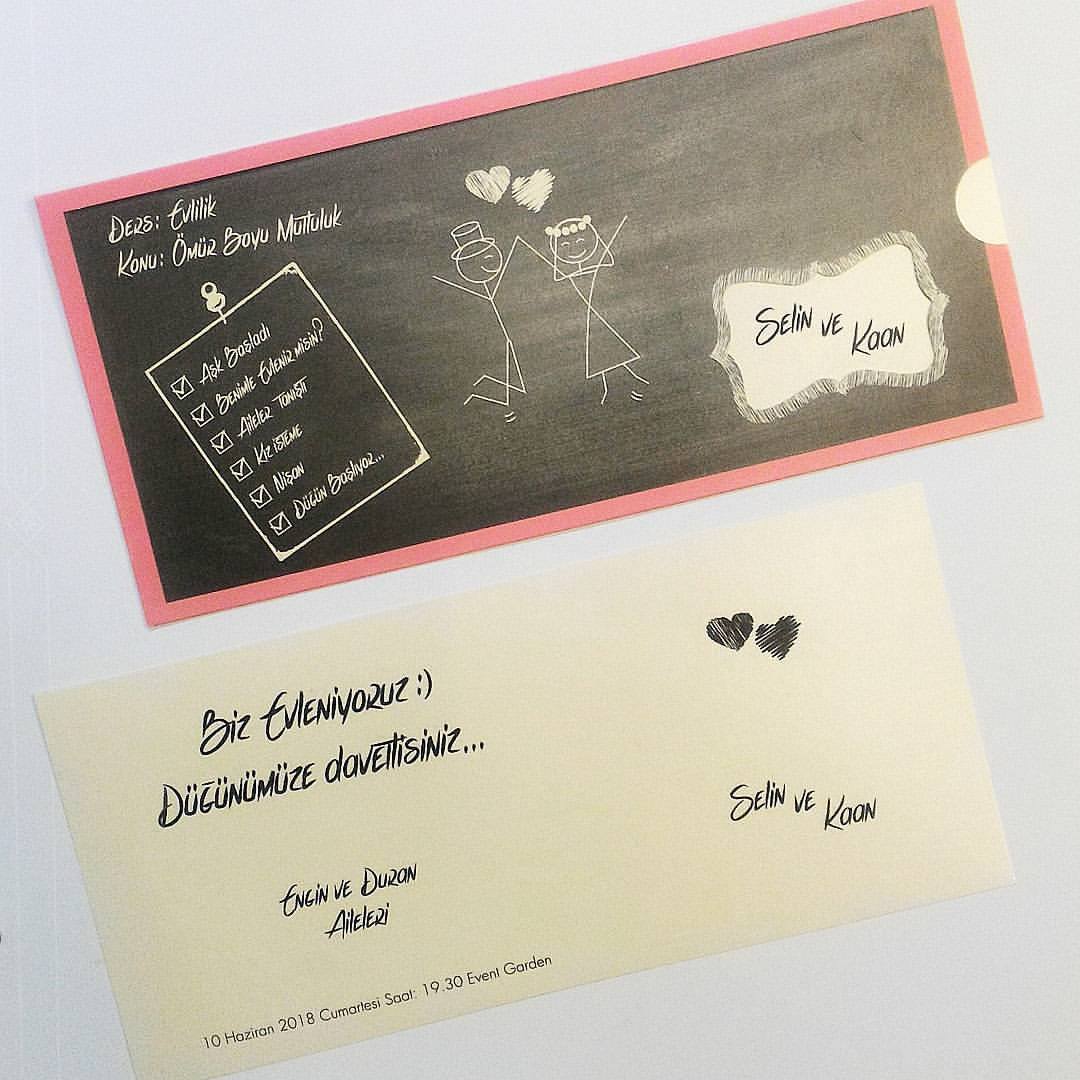 Ders: Evlilik
Konu: Ömür Boyu Mutluluk
Aşk Başladı
Benimle Evlenir misin?
Aileler Tanıştı
Kız isteme
Nişan
Düğün Başlıyor...
Selin ve
Kaan
Biz Evleniyoruz :)
Düğünümüze davetlisiniz...
Engin ve Duran
Aileleri
10 Haziran 2018 Cumartesi Saat: 19.30 Event Garden
Selin ve
Kaan